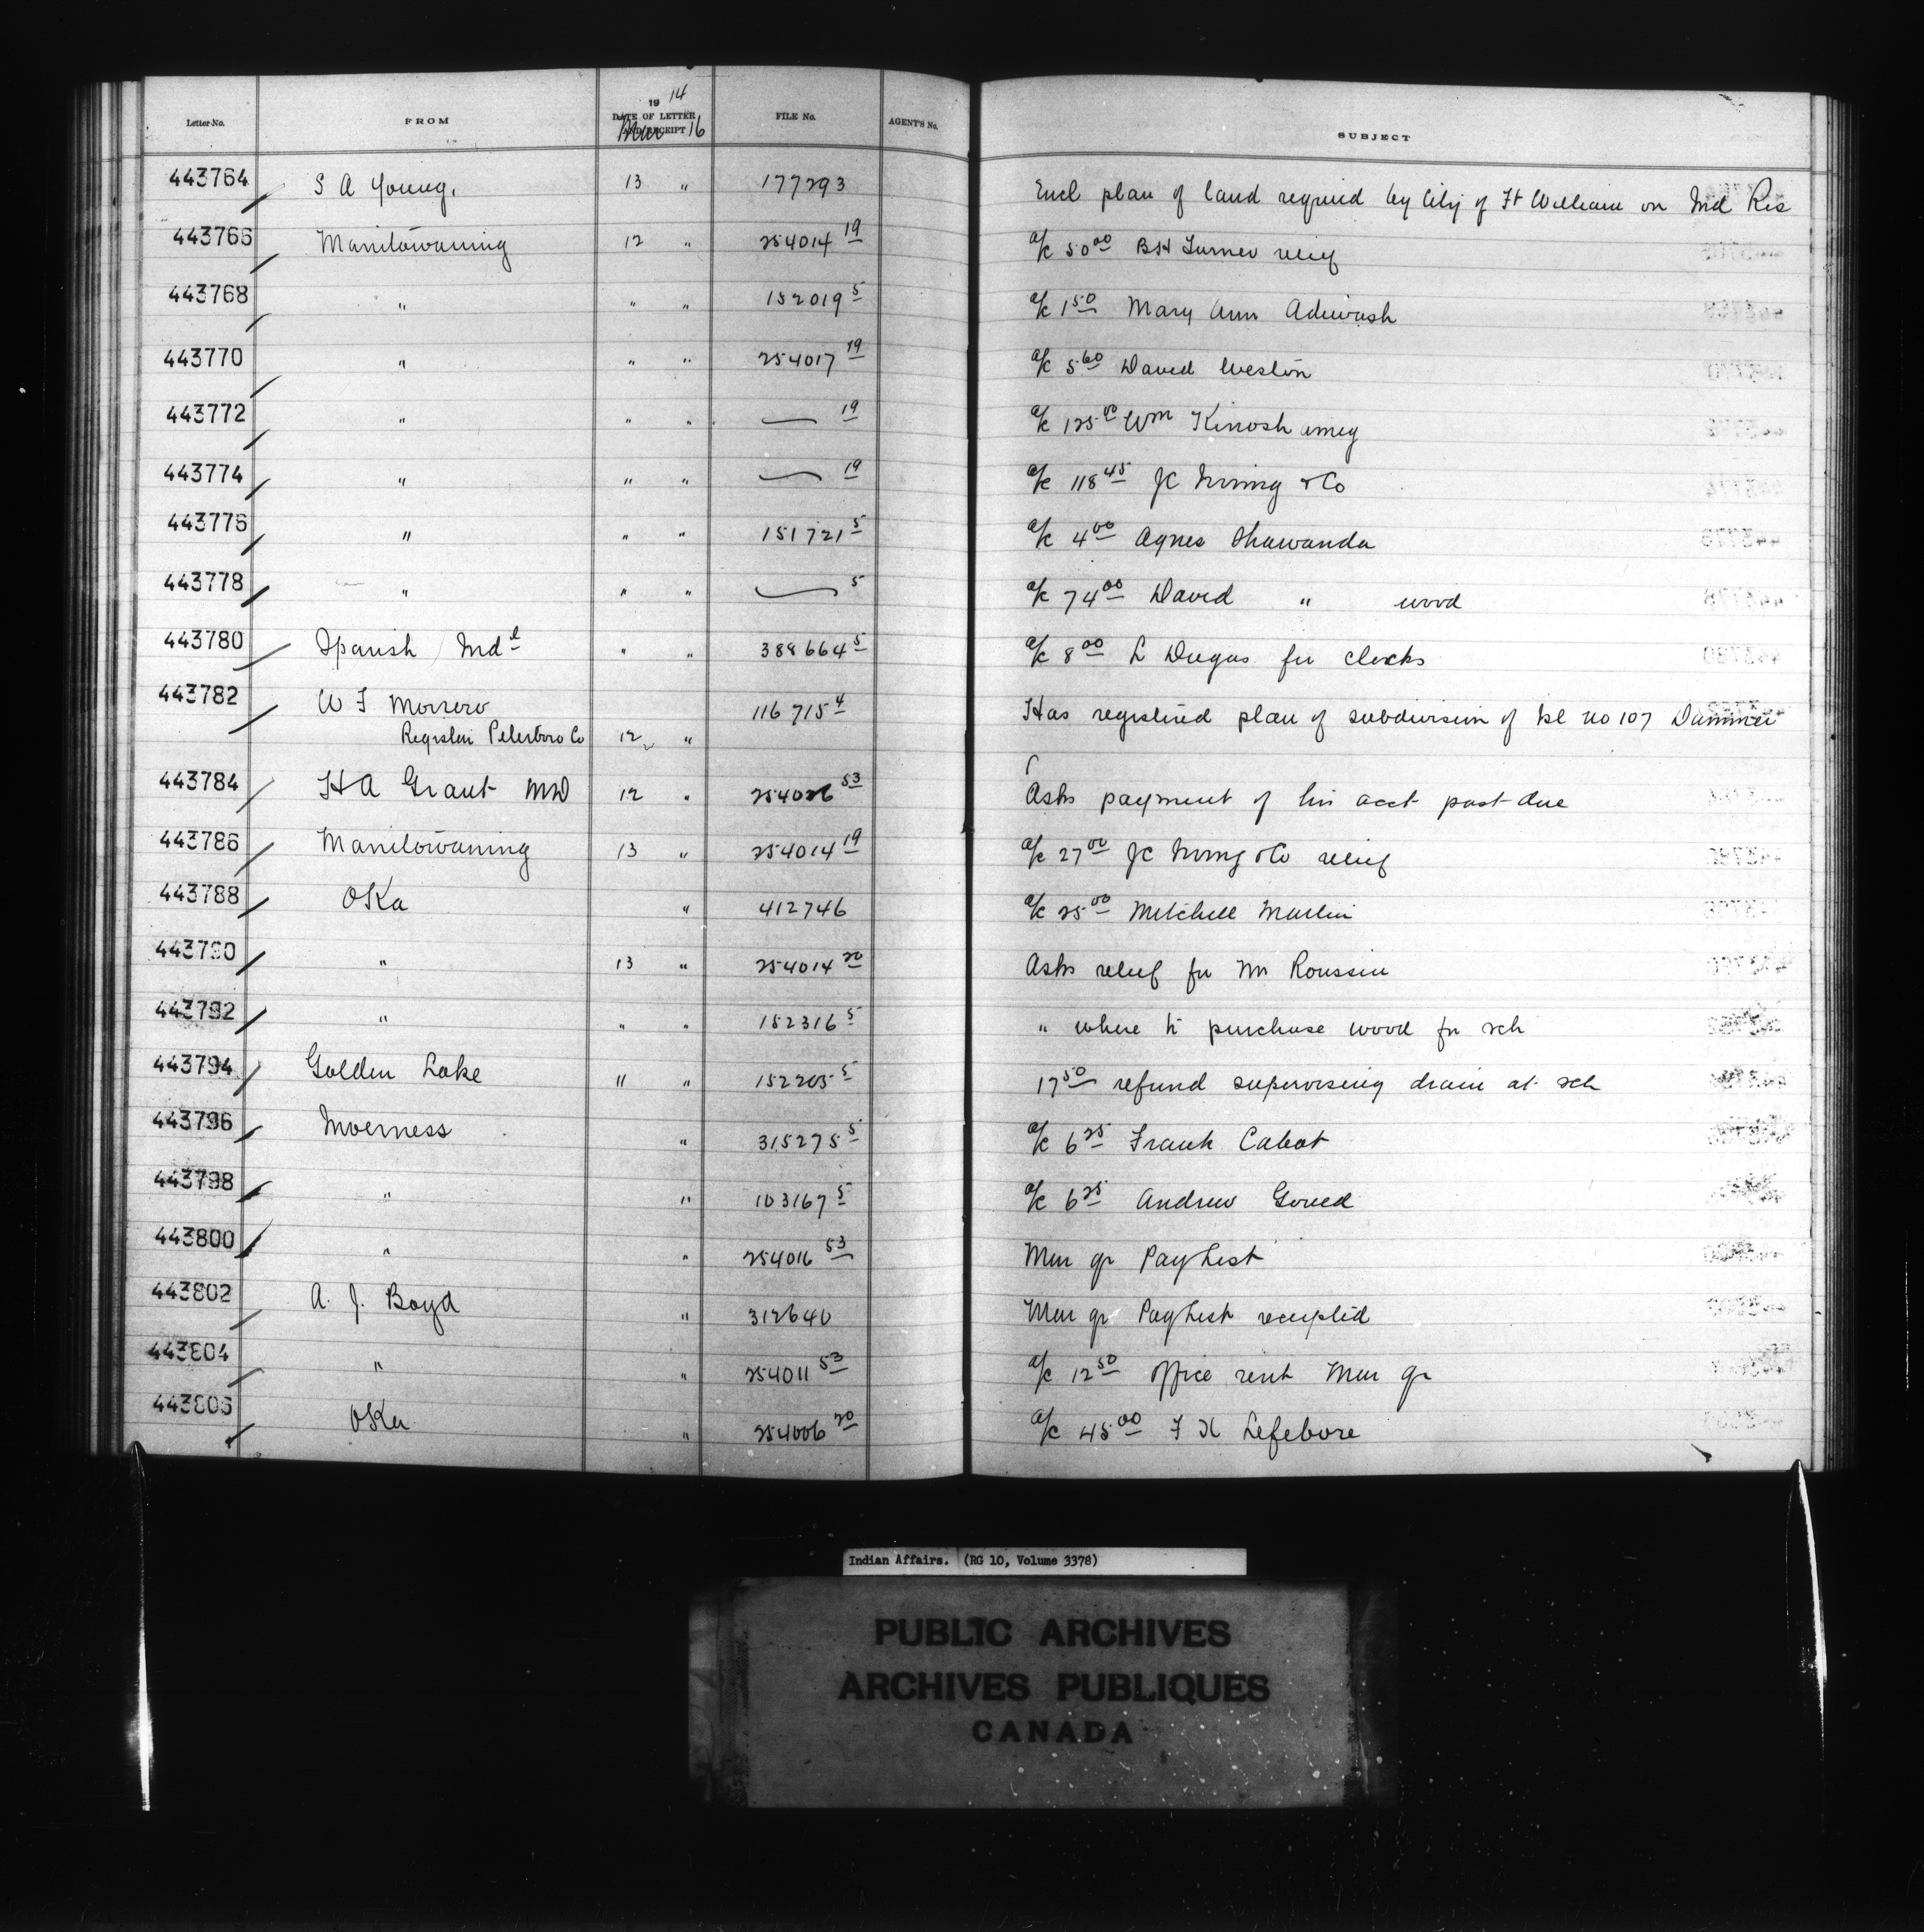 Letter No. FROM 1914 DATE OF LETTER AND RECEIPT Mar 16 FILE No. AGENT'S No. SUBJECT
443764 S A Young. 13 " 177293 Encl plan of land required by City of Ft William on Ind Res
443766 Manitowaning 12 " 254014 19 a/c 50 00 BH Turner relief
443768 " " " 152019 5 a/c 1 50 Mary Ann Adiwash
443770 " " " 254017 19 a/c 5 60 David Weston
443772 " " " — 19 a/c 125 00 Wm Kinoshameg
443774 " " " — 19 a/c 118 45 JC Irving & Co
443776 " " " 151721 5 a/c 4 00 Agnes Shawanda
443778 " " " — 5 a/c 74 00 David " wood
443780 Spanish Indl " " 388664 5 a/c 8 00 L Dugas for clocks
443782 W F Morrow 116715 4 Has registered plan of subdivision of Isl no 107 Dummer
Registrar Peterboro Co 12 "
443784 H A Grant MD 12 " 254026 53 Asks payment of his acct past due
443786 Manitowaning 13 " 254014 19 a/c 27 00 JC Irving & Co relief
443788 OKa " 412746 a/c 25 00 Mitchell Martin
443790 " 13 " 254014 20 Asks relief for Roussin
443792 " " " 152316 5 " where to purchase wood for sch
443794 Golden Lake " " 152205 5 17 50 refund supervising drain at sch
443796 Inverness " 315275 5 a/c 6 25 Frank Cabot
443798 " " 103167 5 a/c 6 25 Andrew Goued
443800 " " 254016 53 Mar qr Pay List
443802 A. J. Boyd " 312640 Mar qr Pay List receipted
443804 " " 254011 53 a/c 12 50 office rent Mar qr
443806 OKa " 254006 20 a/c 45 00 F X Lefebvre
Indian Affairs. (RG 10, Volume 3378)
PUBLIC ARCHIVES
ARCHIVES PUBLIQUES
CANADA